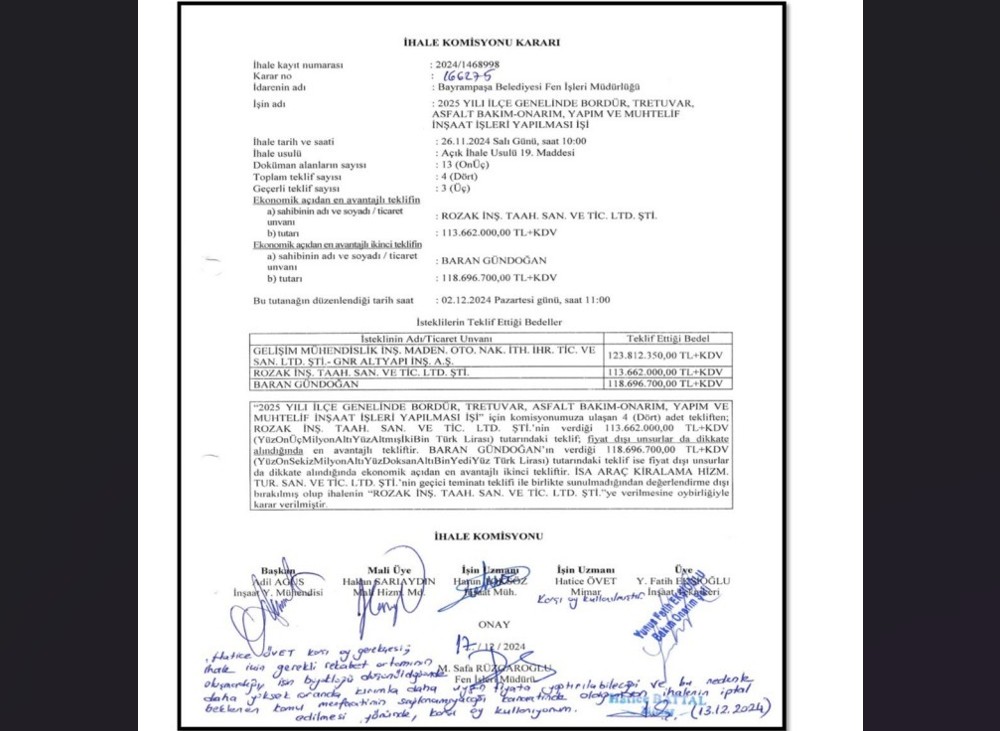 İHALE KOMİSYONU KARARI
İhale kayıt numarası : 2024/1468998
Karar no : 166275
İdarenin adı : Bayrampaşa Belediyesi Fen İşleri Müdürlüğü
İşin adı : 2025 YILI İLÇE GENELİNDE BORDÜR, TRETUVAR,
ASFALT BAKIM-ONARIM, YAPIM VE MUHTELİF
İNŞAAT İŞLERİ YAPILMASI İŞİ
İhale tarih ve saati : 26.11.2024 Salı Günü, saat 10:00
İhale usulü : Açık İhale Usulü 19. Maddesi
Doküman alanların sayısı : 13 (OnÜç)
Toplam teklif sayısı : 4 (Dört)
Geçerli teklif sayısı : 3 (Üç)
Ekonomik açıdan en avantajlı teklifin
a) sahibinin adı ve soyadı / ticaret
unvanı : ROZAK İNŞ. TAAH. SAN. VE TİC. LTD. ŞTİ.
b) tutarı : 113.662.000,00 TL+KDV
Ekonomik açıdan en avantajlı ikinci teklifin
a) sahibinin adı ve soyadı / ticaret
unvanı : BARAN GÜNDOĞAN
b) tutarı : 118.696.700,00 TL+KDV
Bu tutanağın düzenlendiği tarih saat : 02.12.2024 Pazartesi günü, saat 11:00
İsteklilerin Teklif Ettiği Bedeller
İsteklinin Adı/Ticaret Unvanı Teklif Ettiği Bedel
GELİŞİM MÜHENDİSLİK İNŞ. MADEN. OTO. NAK. İTH. İHR. TİC. VE
SAN. LTD. ŞTİ.- GNR ALTYAPI İNŞ. A.Ş. 123.812.350,00 TL+KDV
ROZAK İNŞ. TAAH. SAN. VE TİC. LTD. ŞTİ. 113.662.000,00 TL+KDV
BARAN GÜNDOĞAN 118.696.700,00 TL+KDV
"2025 YILI İLÇE GENELİNDE BORDÜR, TRETUVAR, ASFALT BAKIM-ONARIM, YAPIM VE
MUHTELİF İNŞAAT İŞLERİ YAPILMASI İŞİ" için komisyonumuza ulaşan 4 (Dört) adet tekliften;
ROZAK İNŞ. TAAH. SAN. VE TİC. LTD. ŞTİ.'nin verdiği 113.662.000,00 TL+KDV
(YüzOnÜçMilyonAltıYüzAltmışİkiBin Türk Lirası) tutarındaki teklif; fiyat dışı unsurlar da dikkate
alındığında en avantajlı tekliftir. BARAN GÜNDOĞAN'ın verdiği 118.696.700,00 TL+KDV
(YüzOnSekizMilyonAltıYüzDoksanAltıBinYediYüz Türk Lirası) tutarındaki teklif ise fiyat dışı unsurlar
da dikkate alındığında ekonomik açıdan en avantajlı ikinci tekliftir. İSA ARAÇ KİRALAMA HİZM.
TUR. SAN. VE TİC. LTD. ŞTİ.'nin geçici teminatı teklifi ile birlikte sunulmadığından değerlendirme dışı
bırakılmış olup ihalenin "ROZAK İNŞ. TAAH. SAN. VE TİC. LTD. ŞTİ."ye verilmesine oybirliğiyle
karar verilmiştir.
İHALE KOMİSYONU
Başkan Mali Üye İşin Uzmanı İşin Uzmanı Üye
Adil Hakan SARIAYDIN Harun Hatice ÖVET Y. Fatih
İnşaat Y. Mühendisi Mali Hizm. Md. İnşaat Müh. Mimar İnşaat
Karşı oy kullanmıştır.
Yunus Fatih
Bakım Onarım Şefi
ONAY
17/12/2024
M. Safa RÜZGAROĞLU
Fen İşleri Müdürü
Hatice ÖVET karşı oy gerekçesi;
ihale için gerekli rekabet ortamının
oluşmadığı, işin büyüklüğü düşünüldüğünde
daha yüksek oranda kırımla daha uygun fiyata yaptırılabileceği ve bu nedenle
beklenen kamu menfaatinin sağlanamayacağı kanaatinde olduğumdan ihalenin iptal
edilmesi yönünde, karşı oy kullanıyorum. (13.12.2024)
Hatice